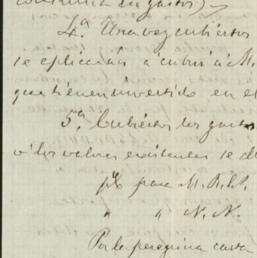 4.ª Una vez cubiertos
se aplicarán a cubrir a M.
que tienen invertido en el
5.ª Cubiertos los gastos
o los valores existentes se di
para M. R. H.
" " N. N.
Por la peregrina casa